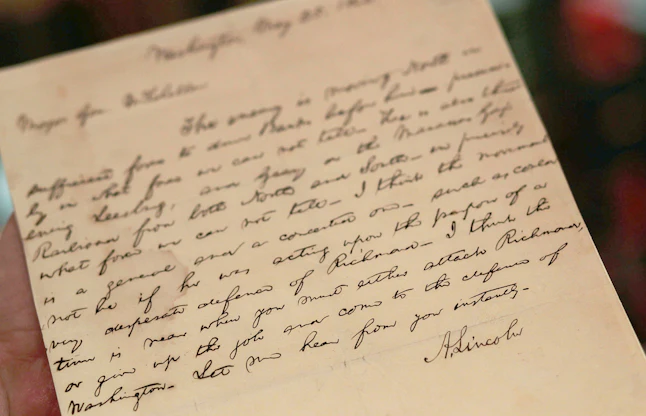 Washington May 25. 
Major Gen. McClellan
The enemy is moving North in
sufficient force to drive Banks before him precise
ly in what force we can not tell. He is also threat
ening Leesburg, and Geary on the Manassas Gap
Railroad from both North and South in precisely
what force we can not tell. I think the movement
is a general and a concerted one. such as could
not be if he was acting upon the purpose of a
very desperate defence of Richmond. I think the
time is near when you must either attack Richmond,
or give up the job and come to the defence of
Washington. Let me hear from you instantly.
A. Lincoln